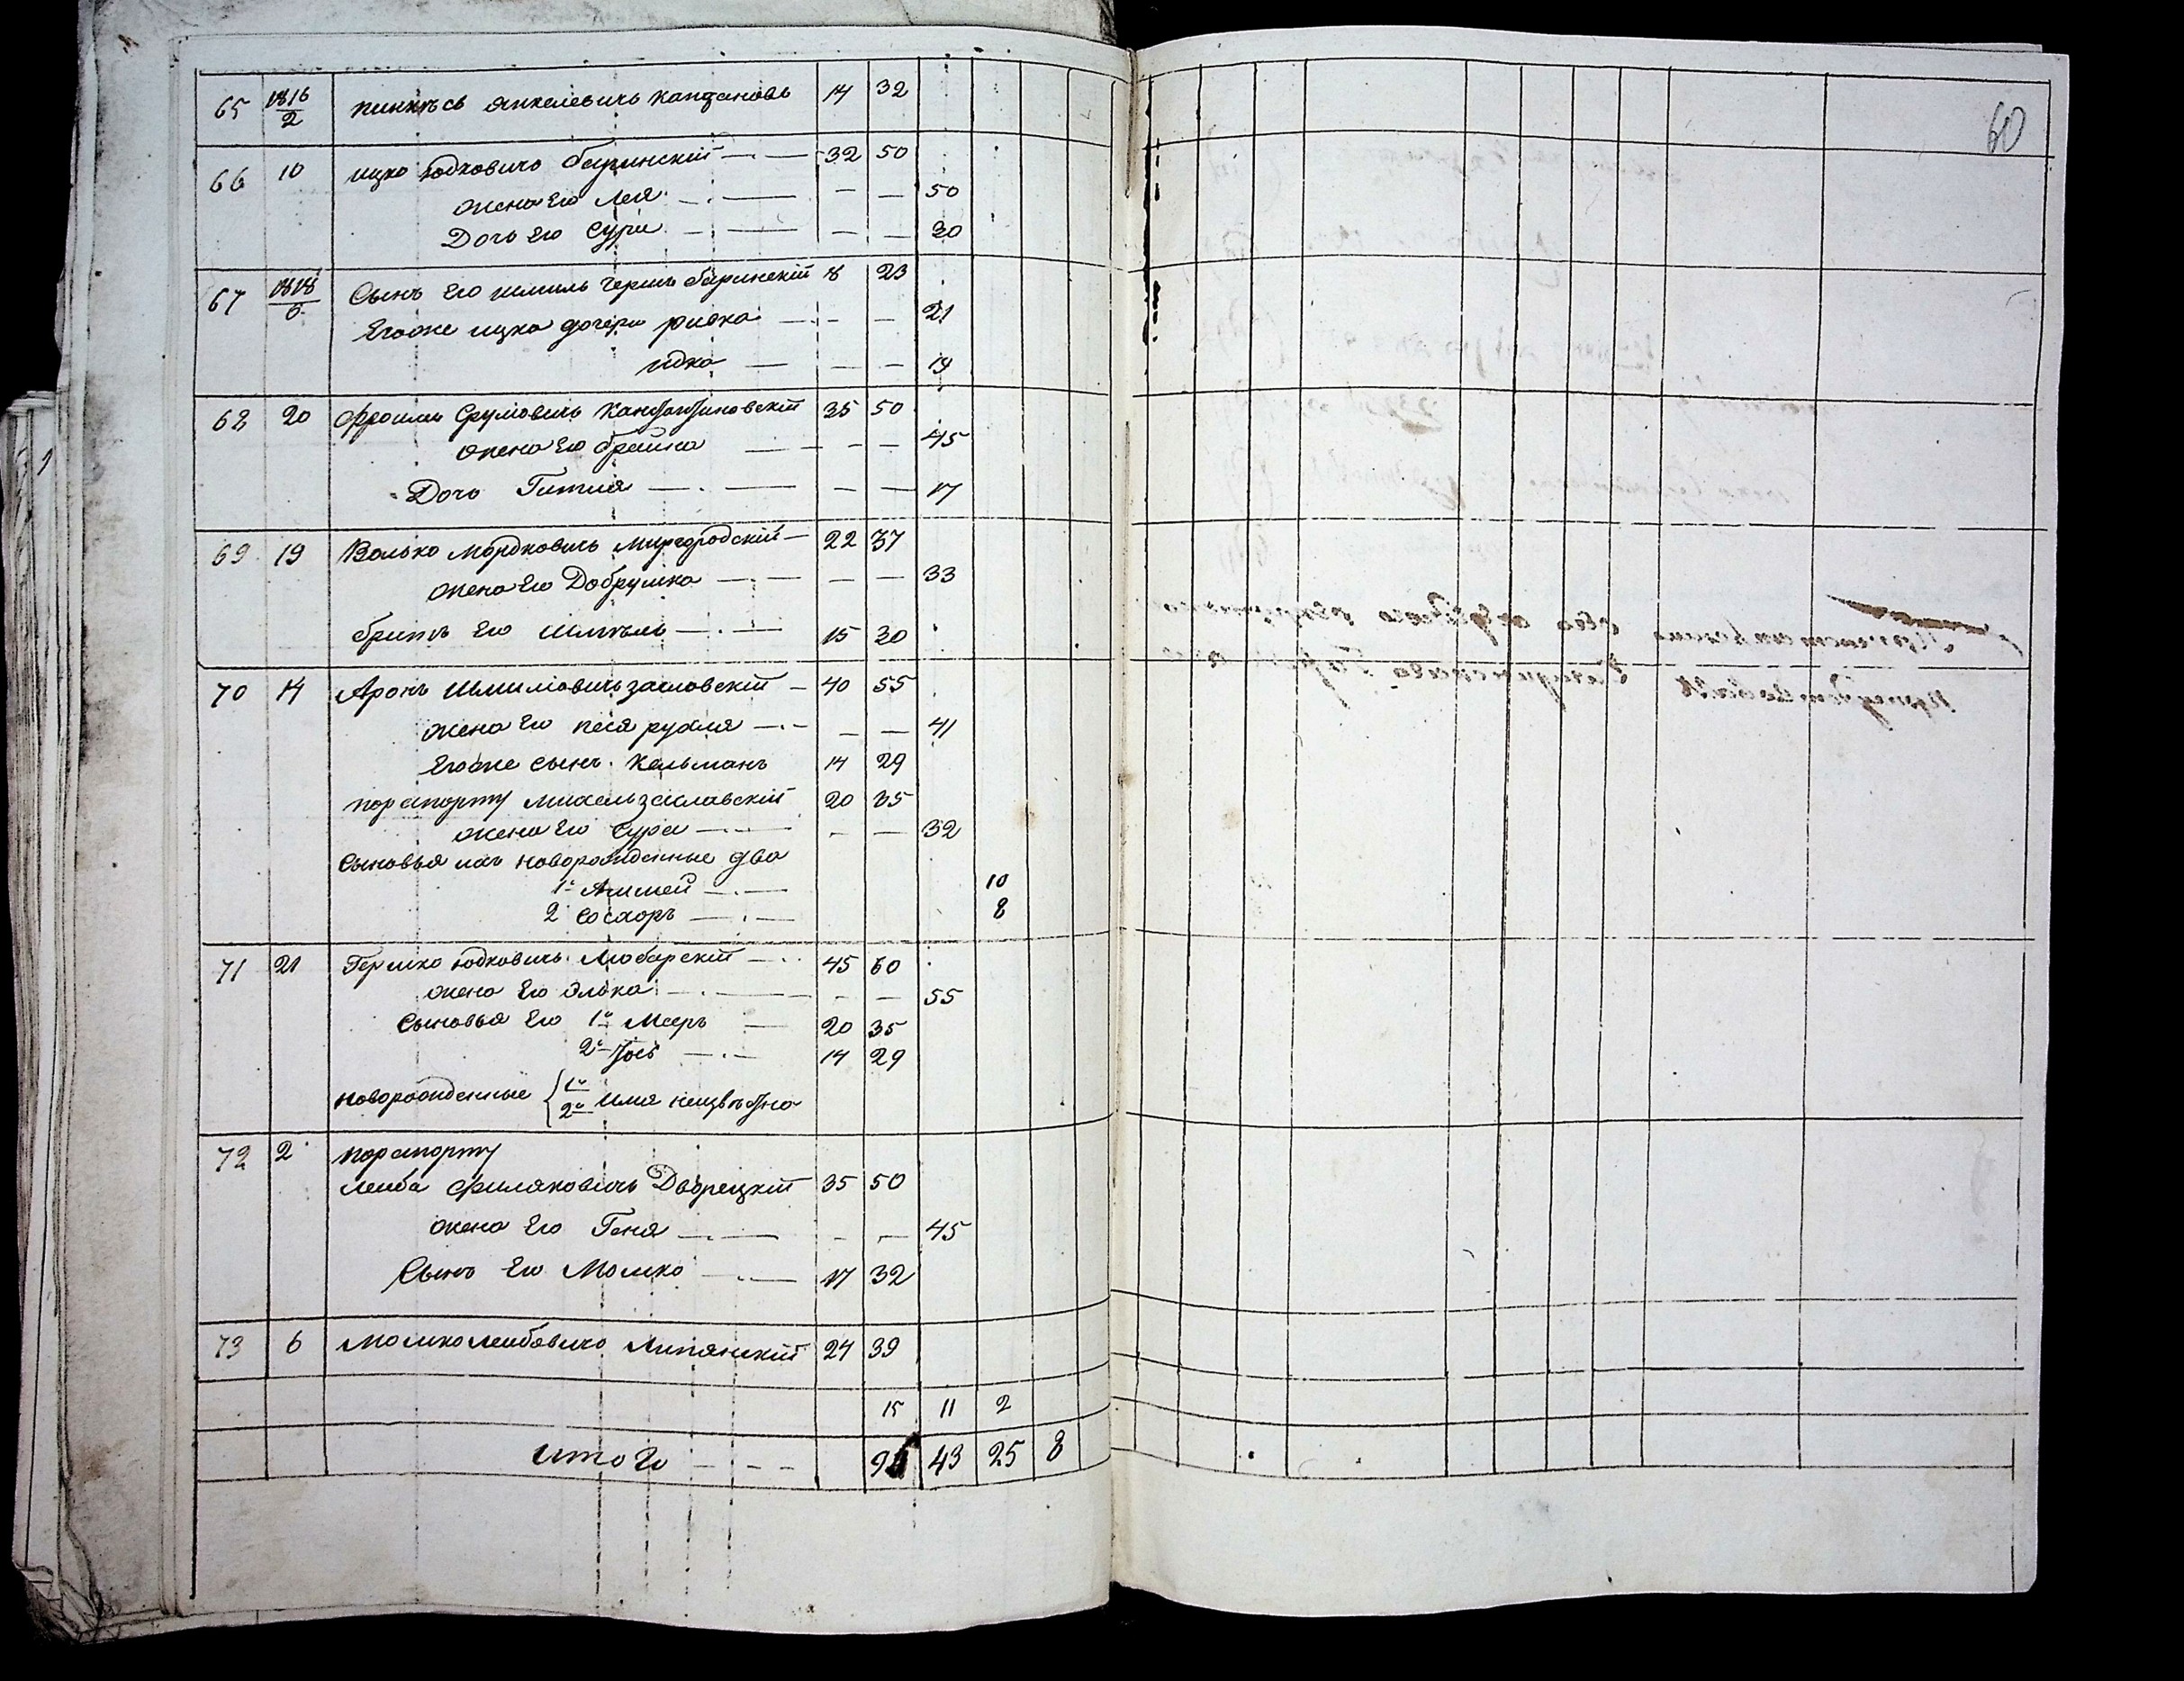 65 1816/2 пинхъсъ янкелевичъ капдановъ 17 32
66 10 ицко юдковичъ баринскiй 32 50
жена Его Лея — — 50
Дочь Его Сура — — 30
67 1818/6 Сынъ Его шмиль Гершъ баринскiй 18 23
Егоже ицка дочери ривка — — 21
идка — — 19
68 20 Фроимъ Срумовичъ Канстантиновскiй 35 50
жена Его брайна — — 45
Дочь Гитля — — 17
69 19 Волько Мордковичъ Миргородскiй 22 37
жена Его Добрушка — — 33
братъ Его Шмиль 15 30
70 14 Аронъ Шмиловичъ заславскiй 40 55
жена Его песя рухля — — 41
Егоже сынъ Кельманъ 14 29
порапорту михель заславскiй 20 35
жена Его Сура — — 32
Сыновья ихъ новорожденные два
1й 10
2 8
71 21 Гершко юдковичъ Любарскiй 45 60
жена Его Элька — — 55
Сыновья Его 1й Мееръ 20 35
2й Iось 14 29
новорожденные 1й 2й имя неизвѣстно
72 2 порапорту
Лейба Дворецкiй 35 50
жена Его Геня — — 45
Сынъ Его Мошко 17 32
73 6 Мошко Лейбовичъ Липянскiй 24 39
15 11 2
итого 43 25 8
60